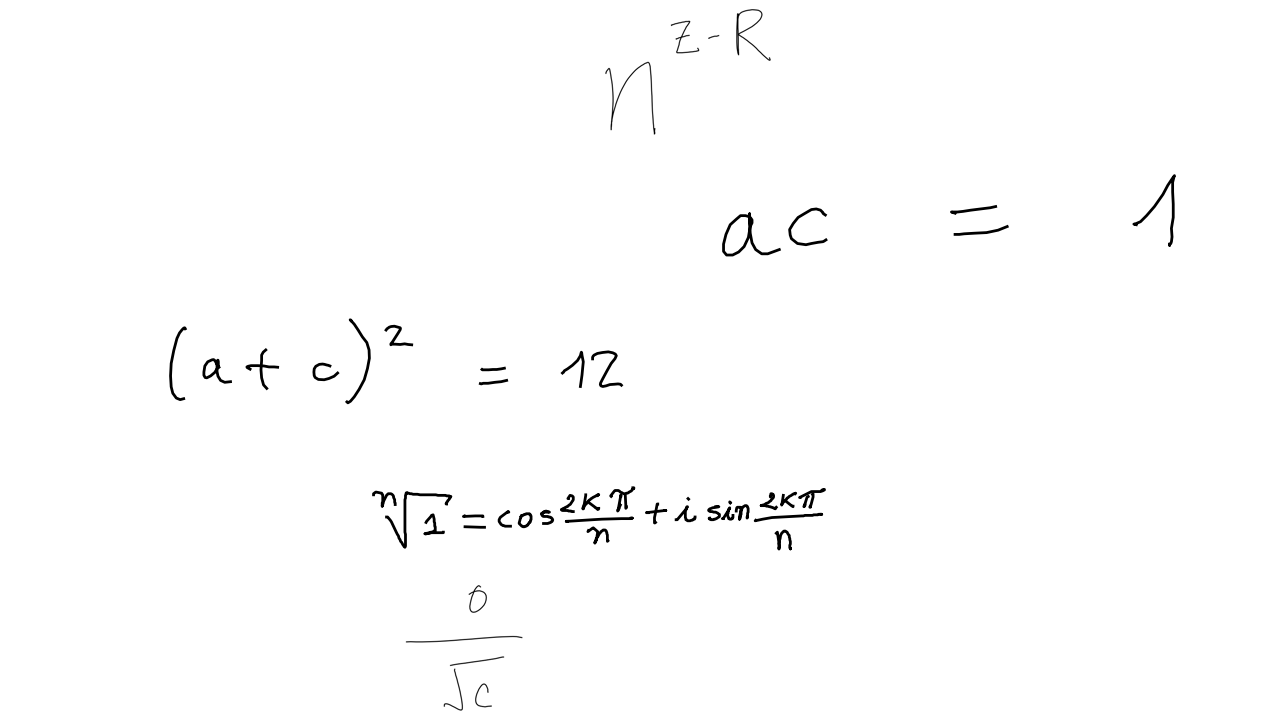 n^{z-R}
ac = 1
(a + c)^2 = 12
\sqrt[n]{1} = cos \frac{2κπ}{n} + i sin \frac{2κπ}{n}
\frac{0}{\sqrt{c}}